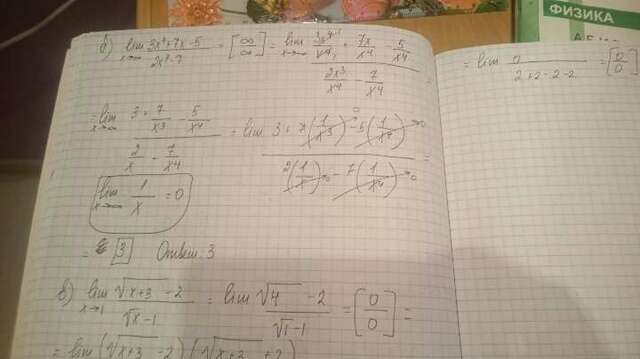 б) lim x→∞ (3x⁴+7x-5)/(2x³-7) = [∞/∞] = lim x→∞ (3x⁴/x⁴ + 7x/x⁴ - 5/x⁴)/(2x³/x⁴ - 7/x⁴)
= lim x→∞ (3 + 7/x³ - 5/x⁴)/(2/x - 7/x⁴) = lim (3 + 7(1/x³)→0 - 5(1/x⁴)→0)/(2(1/x)→0 - 7(1/x⁴)→0) =
lim x→∞ 1/x = 0
= 3 Ответ: 3
в) lim x→1 (√(x+3) - 2)/(√x-1) = lim (√4 - 2)/(√1-1) = [0/0] =
= lim (√(x+3) - 2)(√(x+3) + 2)
= lim 0/(2+2-2-2) = [0/0]
ФИЗИКА